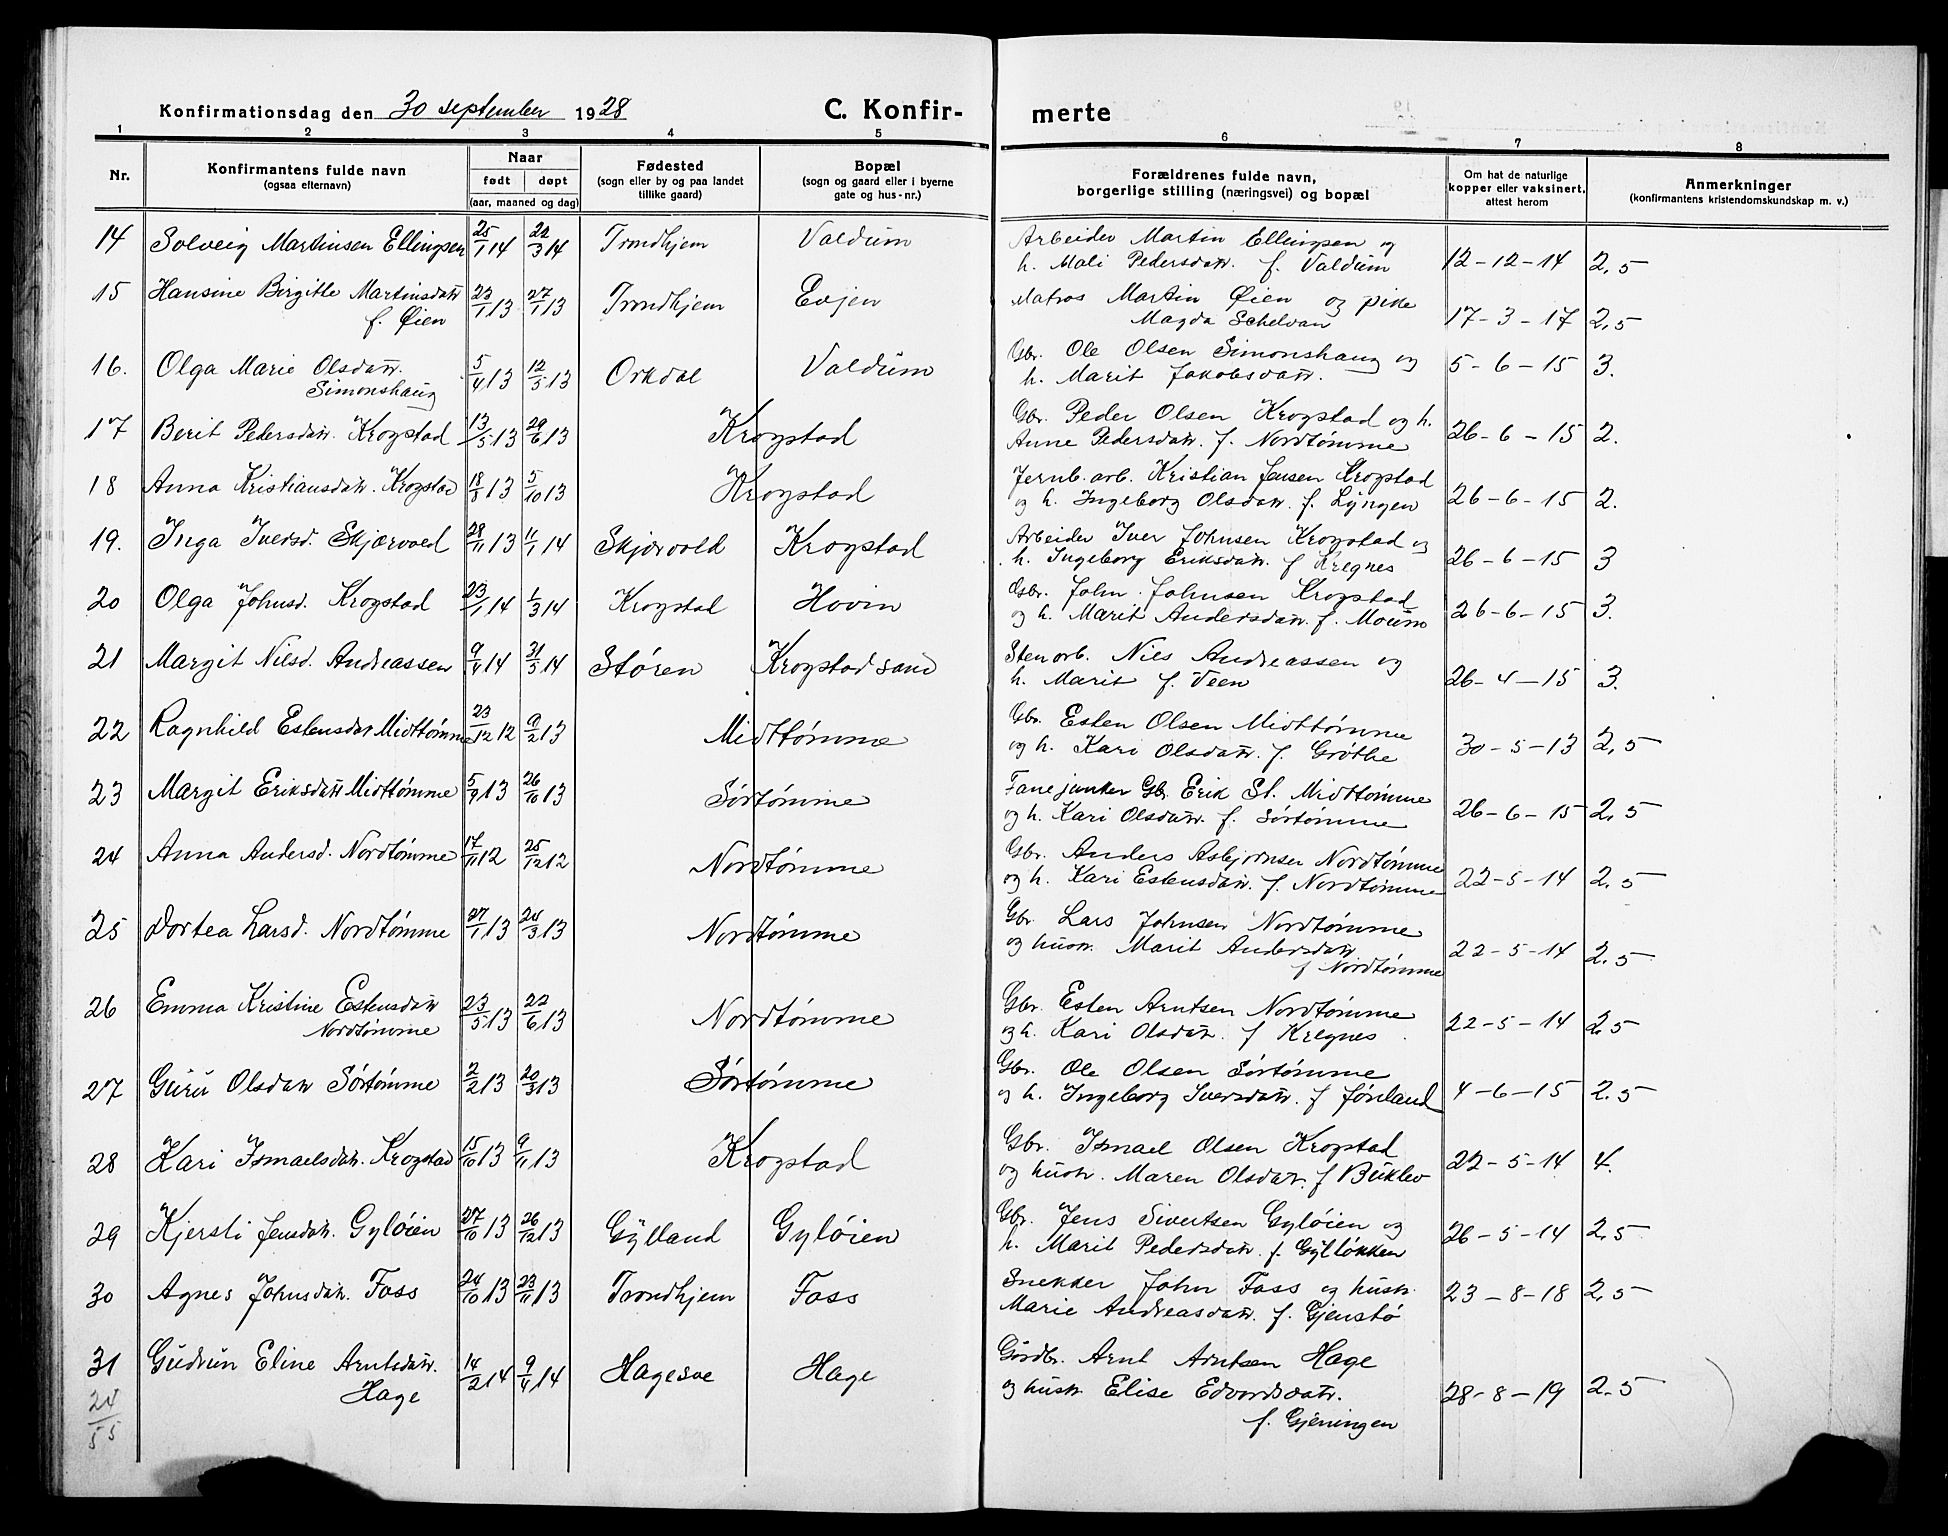 Konfirmationsdag den 30 september 1928 C. Konfir-merte
1 2 3 4 5 6 7 8
Nr.
Konfirmantens fulde navn
(ogsaa efternavn)
Naar
født døpt
(aar, maaned og dag)
Fødested
(sogn eller by og paa landet
tillike gaard)
Bopæl
(sogn og gaard eller i byerne
gate og hus-nr.)
Forældrenes fulde navn,
borgerlige stilling (næringsvei) og bopæl
Om hat de naturlige
kopper eller vaksinert,
attest herom
Anmerkninger
(konfirmantens kristendomskundskap m. v.)
14 Solveig Martinsen Ellingsen 25/1 14 22/3 14 Trondhjem Valdum Arbeider Martin Ellingsen og
h. Mali Pedersdatr. f. Valdum 12-12-14 2,5
15 Hansine Birgitte Martinsdatr 23/1 13 27/1 13 Trondhjem Evjen Matros Martin Øien og pike
f. Øien Magda Schelvan 17-3-17 2,5
16. Olga Marie Olsdatr. 5/4 13 12/5 13 Orkdal Valdum Gbr. Ole Olsen Simonshaug og
Simonshaug h. Marit Jakobsdatr. 5-6-15 3.
17 Berit Pedersdatr. Krogstad 13/5 13 29/6 13 Krogstad Gbr. Peder Olsen Krogstad og h.
Anne Pedersdatr. f. Nordtømme 26-6-15 2.
18 Anna Kristiansdatr. Krogstad 18/8 13 5/10 13 Krogstad Jernb. arb. Kristian Jensen Krogstad
og h. Ingeborg Olsdatr. f. Lyngen 26-6-15 2.
19. Inga Iversd. Skjærvold 28/11 13 11/1 14 Skjærvold Krogstad Arbeider Iver Johnsen Krogstad og
h. Ingeborg Eriksdatr. f Kregnes 26-6-15 3
20 Olga Johnsd. Krogstad 23/1 14 1/3 14 Krogstad Hovin Gbr. John Johnsen Krogstad
og h. Marit Andersdatr. f. Moum 26-6-15 3.
21 Margit Nilsd. Andreassen 9/4 14 31/5 14 Støren Krogstadsand Stenarb. Nils Andreassen og
h. Marit f. Veen 26-4-15 3.
22 Ragnhild Estensdatr Midttømme 23/12 12 9/2 13 Midttømme Gbr. Esten Olsen Midttømme
og h. Kari Olsdatr. f. Grøthe 30-5-13 2,5
23 Margit Eriksdatr Midttømme 5/9 13 26/10 13 Sørtømme Fanejunker Gbr. Erik St. Midttømme
og h. Kari Olsdatr. f. Sørtømme 26-6-15 2,5
24 Anna Andersd. Nordtømme 17/11 12 25/12 12 Nordtømme Gbr. Anders Asbjørnsen Nordtømme
og h. Kari Estensdatr. f. Nordtømme 22-5-14 2.5
25 Dortea Larsd. Nordtømme 27/1 13 24/3 13 Nordtømme Gbr. Lars Johnsen Nordtømme
og hustr. Marit Andersdatr 22-5-14 2.5
f Nordtømme
26 Emma Kristine Estensdatr 23/5 13 22/6 13 Nordtømme Gbr. Esten Arntsen Nordtømme
Nordtømme og h. Kari Olsdatr. f Kregnes. 22-5-14 2,5
27 Guru Olsdatr Sørtømme 2/2 13 20/3 13 Sørtømme Gbr. Ole Olsen Sørtømme
og h. Ingeborg Iversdatr. f Jønland 4-6-15 2.5
28 Kari Ismaelsdatr. Krogstad 15/10 13 9/11 13 Krogstad Gbr. Ismael Olsen Krogstad
og hustr. Maren Olsdatr. f Buklev 22-5-14 4.
29 Kjersti Jensdatr. Gyløien 27/10 13 26/12 13 Gylland Gyløien Gbr. Jens Sivertsen Gyløien og
h. Marit Pedersdatr. f. Gylløkken 26-5-14 2,5
30 Agnes Johnsdatr. Foss 24/10 13 23/11 13 Trondhjem Foss Snekker John Foss og hustr.
Marie Andreasdatr. f. Gjenstø 23-8-18 2,5
31 Gudrun Eline Arntsdatr. 14/2 14 9/4 14 Hagesve Hage Gårdbr. Arnt Arntsen Hage
Hage og hustr. Elise Edvardsdatr. 28-8-19 2.5
f. Gjeningen
24/55